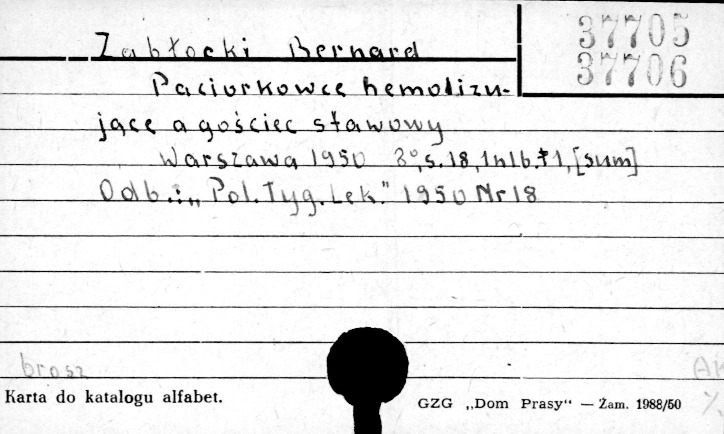 37705
37706
Zabłocki Bernard
Paciorkowce hemolizu-
jące a gościec stawowy
Warszawa 1950 8°, s. 18, 1nlb. + 1, [sum]
Odb.: „Pol. Tyg. Lek." 1950 Nr 18
brosz
Karta do katalogu alfabet.
GZG „Dom Prasy“ — Żam. 1988/50